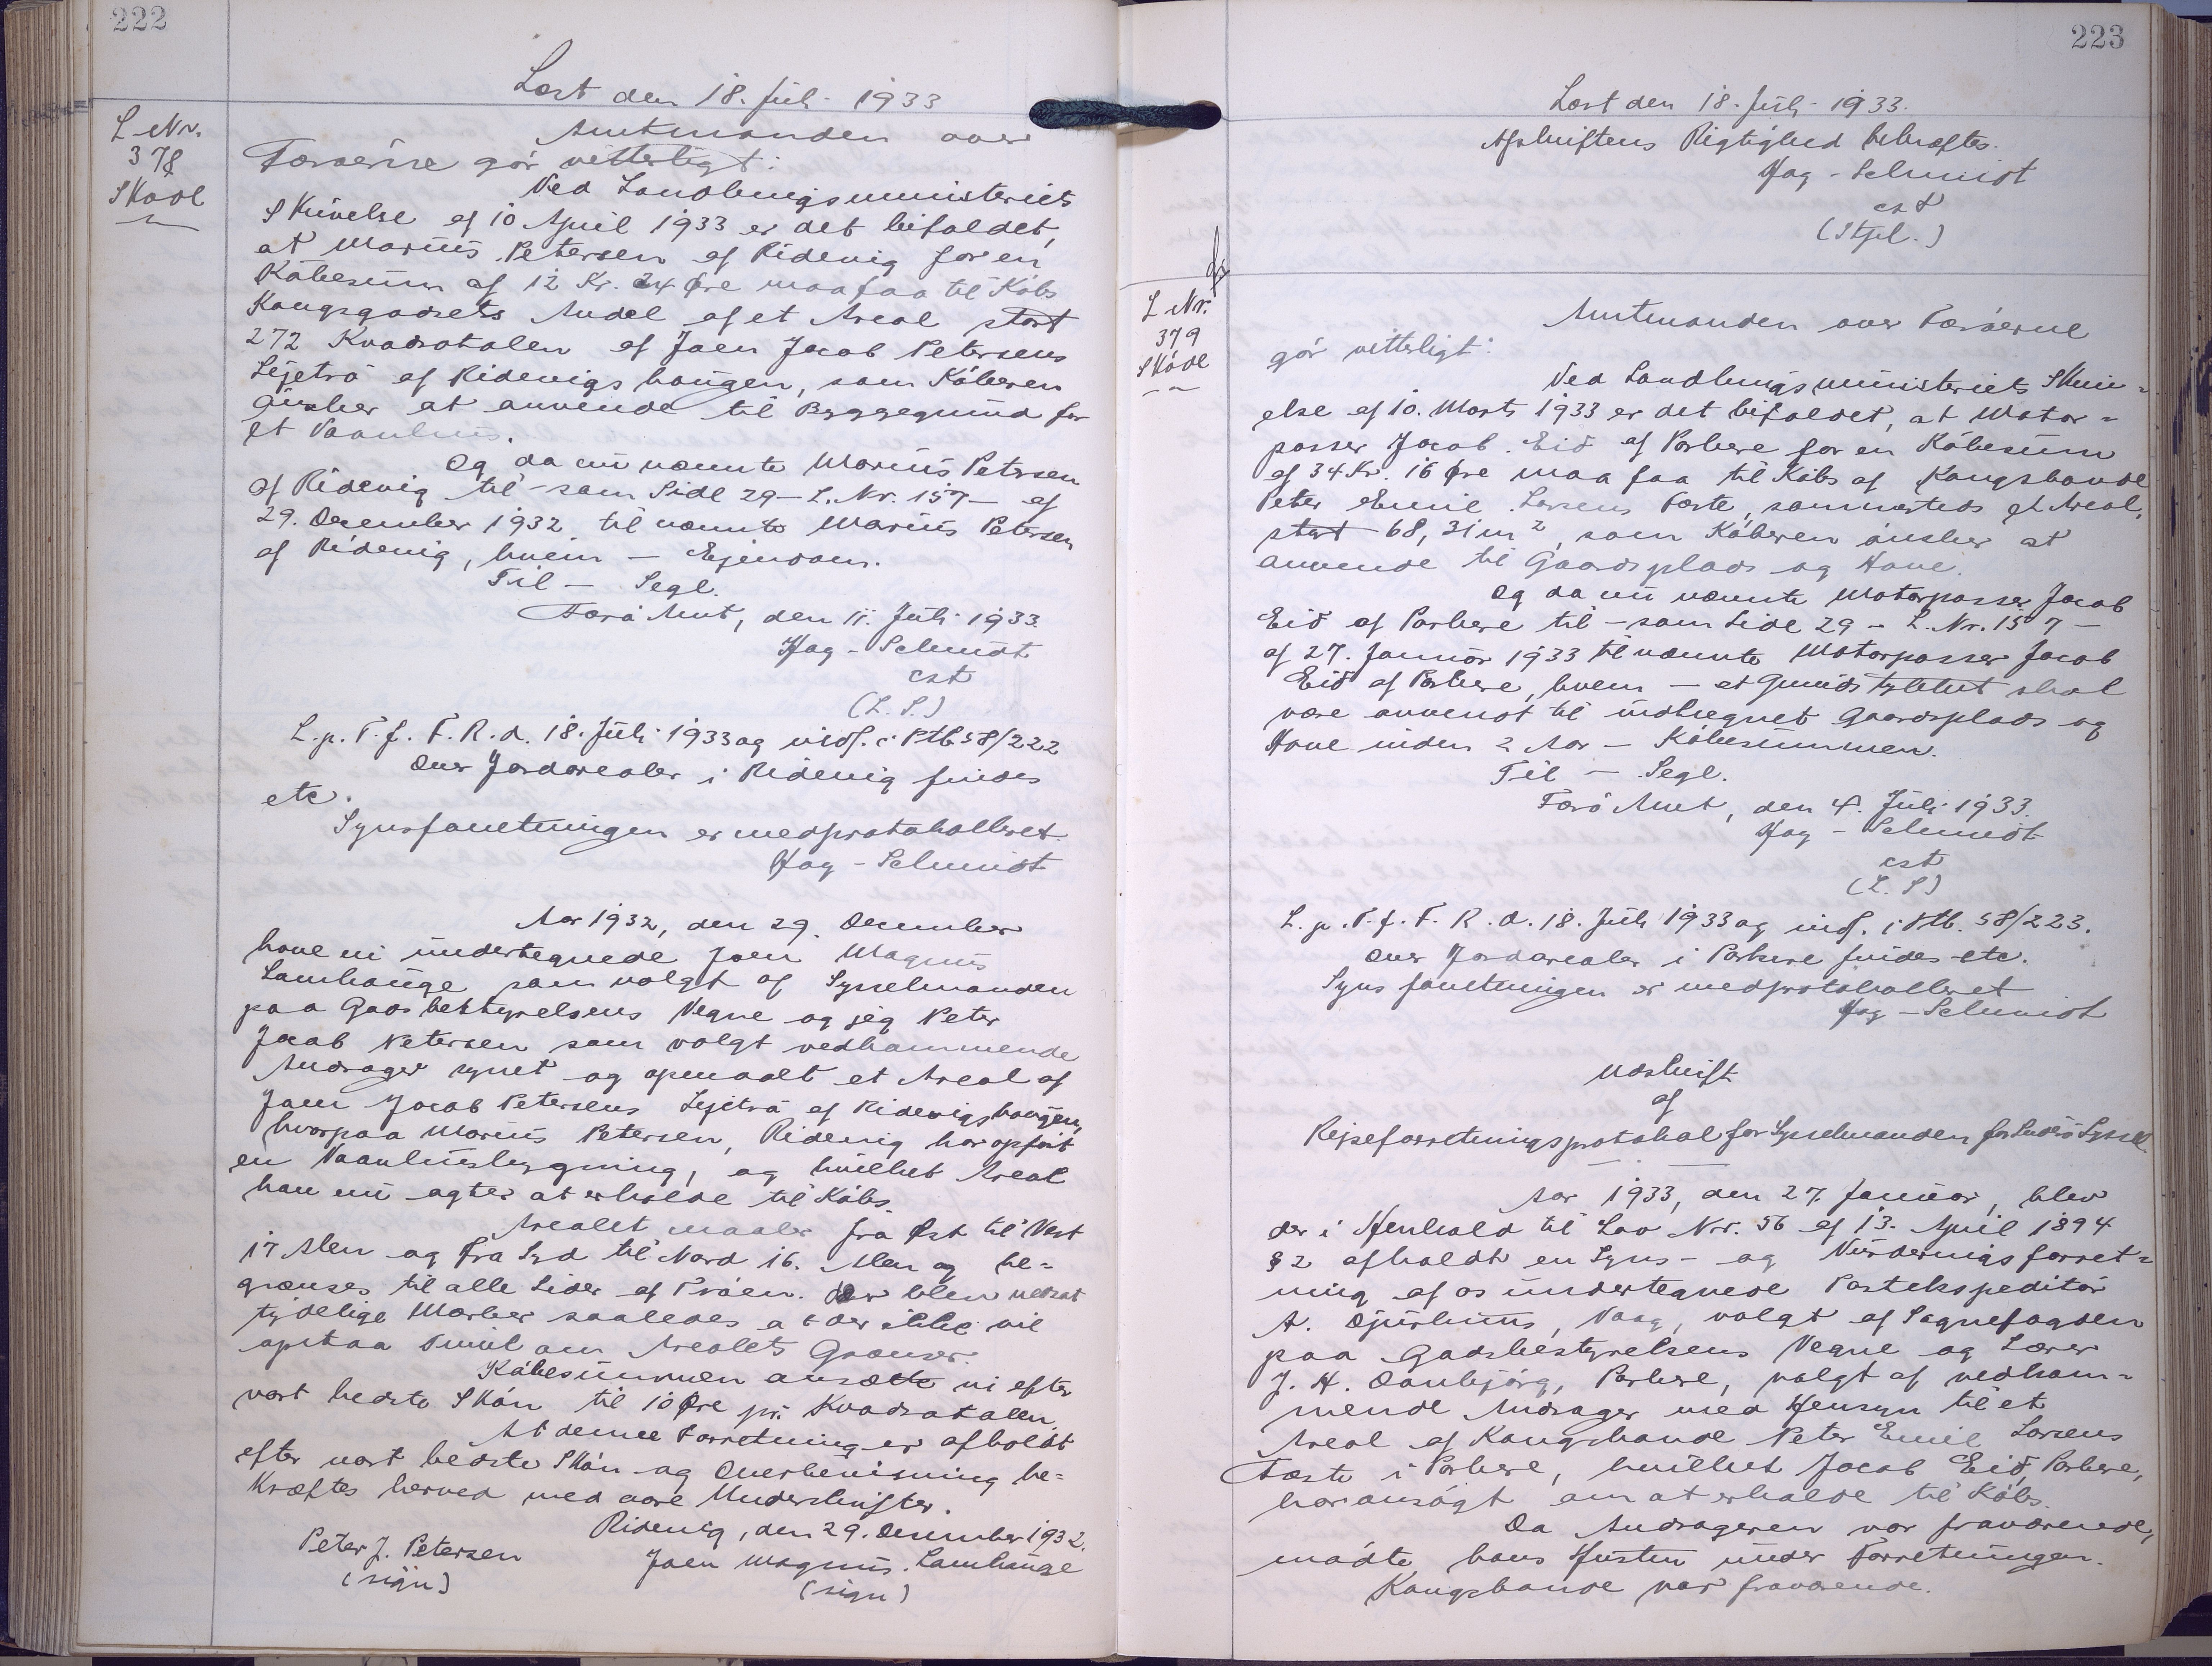 222
Læst den 18. Juli 1933
L Nr.
378
Skøde
Amtmanden over
Færøerne gør vitterligt:
Ved Landbrugsministeriets
Skrivelse af 10 April 1933 er det bifaldet,
at Marius Petersen af Ridevig for en
Købesum af 12 Kr. 24 Øre maa faa til Købs
Kongsgodsets Andel af et Areal stort
272 Kvadratalen af Joen Jacob Petersens
Lejetrø af Ridevigshougen, som Køberen
ønsker at anvende til Byggegrund for
et Vaanhus.
Og da nu nævnte Marius Petersen
af Ridevig til - som Side 29 - L. Nr. 157 - af
29. December 1932 til nævnte Marius Petersen
af Ridevig, hvem - Ejendom.
Til - Segl.
Færø Amt, den 11. Juli 1933.
Hag - Schmidt
cst
(L.S.)
L. p. T. f. F. R. d. 18. Juli 1933 og indf. i Ptb. 58/222
Over Jordarealer i Ridevig findes
etc.
Synsforretningen er medprotokolleret.
Hag - Schmidt
Aar 1932, den 29. December
have vi undertegnede Joen Magnus
Lamhauge som valgt af Sysselmanden
paa Godsbestyrelsens Vegne og jeg Peter
Jacob Petersen som valgt vedkommende
Andrager synet og opmaalt et Areal af
Joen Jacob Petersens Lejetrø af Ridevigshougen,
hvorpaa Marius Petersen, Ridevig har opført
en Vaanhusbygning, og hvilket Areal
han nu agter at erholde til Købs.
Arealet maaler fra Øst til Vest
17 Alen og fra Syd til Nord 16. Alen og be=
grænses til alle Sider af Trøen. Der blev nedsat
tydelige Mærker saaledes at der ikke vil
opstaa Tvivl om Arealets Grænser.
Købesummen ansætte vi efter
vort bedste Skøn til 10 Øre pr. Kvadratalen.
At denne Forretning er afholdt
efter vort bedste Skøn og Overbevisning be=
kræftes herved med vore Underskrifter.
Ridevig, den 29. December 1932.
Peter J. Petersen Joen Magnus. Lamhauge
(sign) (sign)
223
Læst den 18. Juli 1933.
Afskriftens Rigtighed bekræftes.
Hag - Schmidt
cst
(Stpl.)
L Nr.
379
Skøde
Amtmanden over Færøerne
gør vitterligt:
Ved Landbrugsministeriets Skriv=
else af 10. Marts 1933 er det bifaldet, at Motor=
passer Jacob Eið af Porkere for en Købesum
af 34 Kr. 16 Øre maa faa til Købs af Kongsbonde
Peter Emil Larsens Fæste, sammesteds et Areal,
stort 68,31 m², som Køberen ønsker at
anvende til Gaardsplads og Have.
Og da nu nævnte Motorpasser Jacob
Eið af Porkere til - som Side 29 - L. Nr. 157 -
af 27. Januar 1933 til nævnte Motorpasser Jacob
Eið af Porkere, hvem - et Grundstykket skal
være anvendt til indhegnet Gaardsplads og
Have inden 2 Aar - Købesummen.
Til - Segl.
Færø Amt, den 4. Juli 1933.
Hag - Schmidt
cst
(L.S)
L. p. T. f. F. R. d. 18. Juli 1933 og indf. i Ptb. 58/223.
Over Jordarealer i Porkere findes etc.
Synsforretningen er medprotokolleret
Hag - Schmidt
Udskrift
af
Rejseforretningsprotokol for Sysselmanden for Suderø Syssel.
Aar 1933, den 27. Januar, blev
der i Henhold til Lov Nr. 56 af 13. April 1894
§ 2 afholdt en Syns- og Vurderingsforret=
ning af os undertegnede Postekspeditør
A. Djurhuus, Vaag, valgt af Sognefogden
paa Godsbestyrelsens Vegne og Lærer
J. H. Danbjørg, Porkere, valgt af vedkom=
mende Andrager med Hensyn til et
Areal af Kongsbonde Peter Emil Larsens
Fæste i Porkere, hvilket Jacob Eið, Porkere,
har ansøgt om at erholde til Købs.
Da Andrageren var fraværende,
mødte hans Hustru under Forretningen.
Kongsbonde var fraværende.